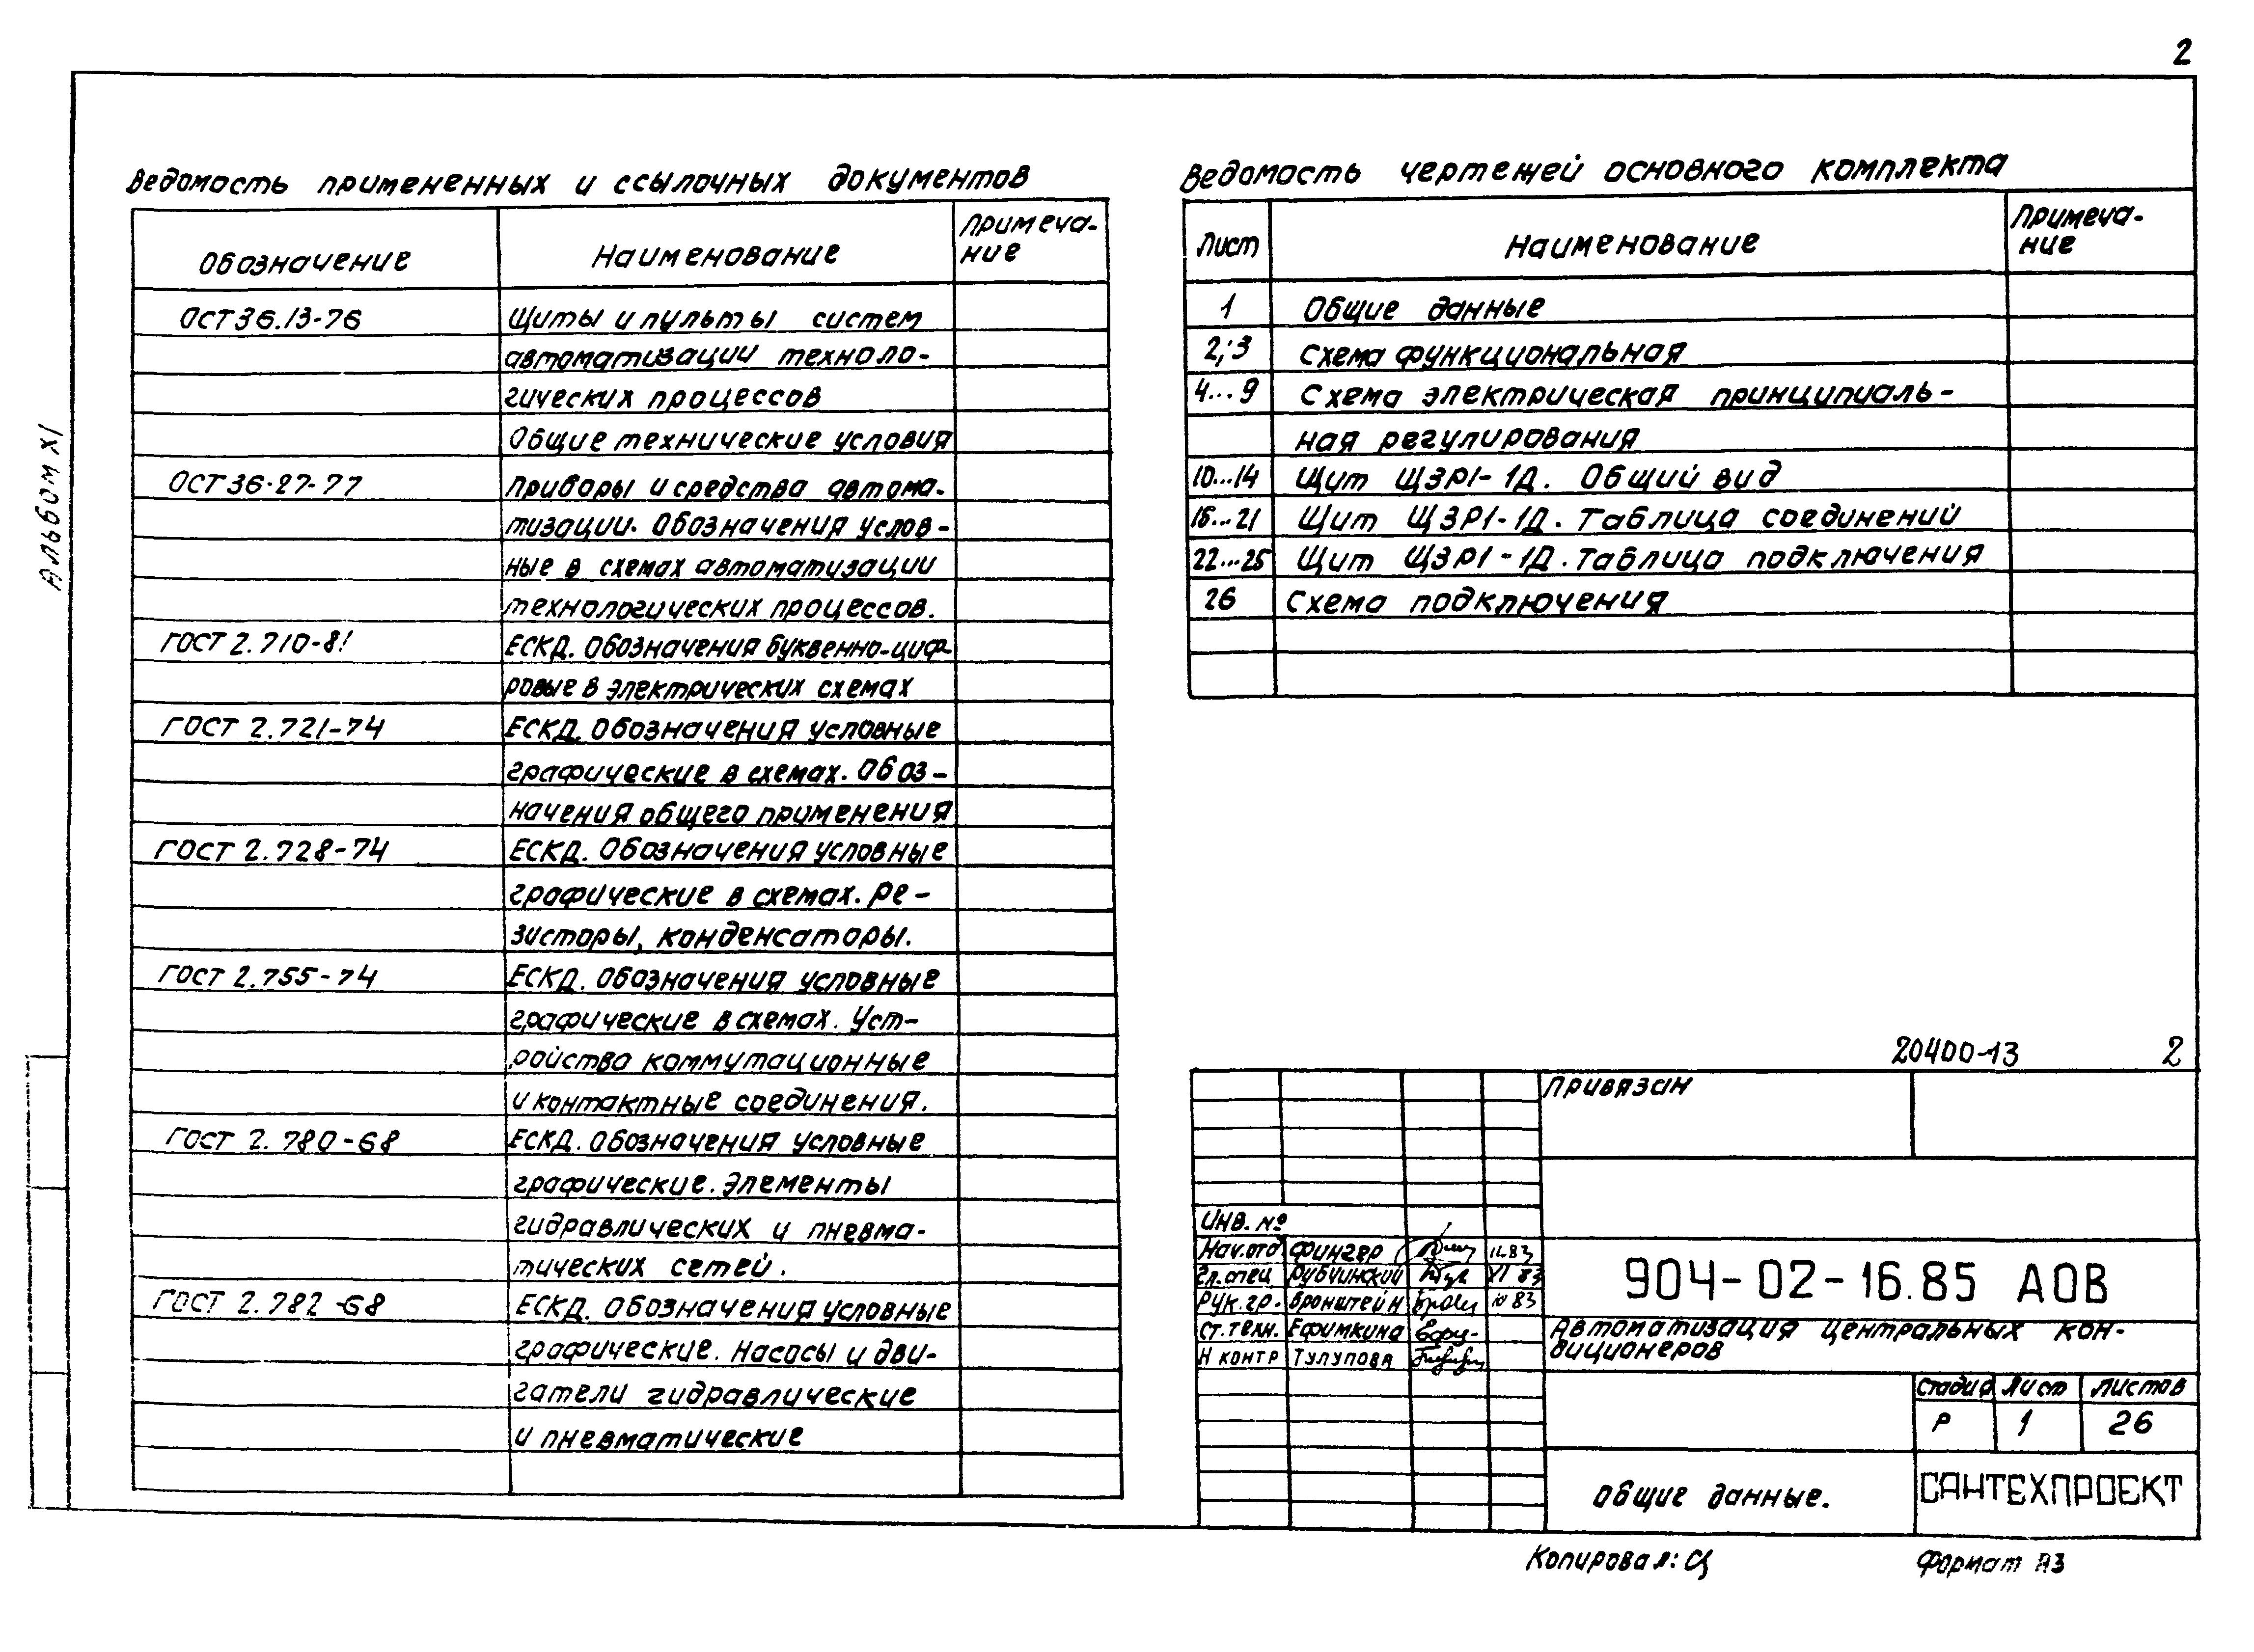 2
Альбом XI
Ведомость примененных и ссылочных документов
Обозначение Наименование Примеча-
ние
ОСТ 36.13-76 Щиты и пульты систем
автоматизации техноло-
гических процессов
Общие технические условия
ОСТ 36-27-77 Приборы и средства автома-
тизации. Обозначения услов-
ные в схемах автоматизации
технологических процессов.
ГОСТ 2.710-81 ЕСКД. Обозначения буквенно-циф-
ровые в электрических схемах
ГОСТ 2.721-74 ЕСКД. Обозначения условные
графические в схемах. Обоз-
начения общего применения
ГОСТ 2.728-74 ЕСКД. Обозначения условные
графические в схемах. Ре-
зисторы, конденсаторы.
ГОСТ 2.755-74 ЕСКД. Обозначения условные
графические в схемах. Уст-
ройства коммутационные
и контактные соединения.
ГОСТ 2.780-68 ЕСКД. Обозначения условные
графические. Элементы
гидравлических и пневма-
тических сетей.
ГОСТ 2.782-68 ЕСКД. Обозначения условные
графические. Насосы и дви-
гатели гидравлические
и пневматические
Ведомость чертежей основного комплекта
Лист Наименование Примеча-
ние
1 Общие данные
2,3 Схема функциональная
4...9 Схема электрическая принципиаль-
ная регулирования
10...14 Щит ЩЗР1-1Д. Общий вид
16...21 Щит ЩЗР1-1Д. Таблица соединений
22...25 Щит ЩЗР1-1Д. Таблица подключения
26 Схема подключения
20400-13 2
Привязан
Инв. №
Нач.отд Фингер 11.83
Гл.спец Рубчинский XI 83
Рук.гр. Бронштейн 83
Ст.техн. Ефимкина
Н контр Тулупова
904-02-16.85 АОВ
Автоматизация центральных кон-
диционеров
Стадия Лист Листов
Р 1 26
Общие данные.
САНТЕХПРОЕКТ
Копировал: Формат А3